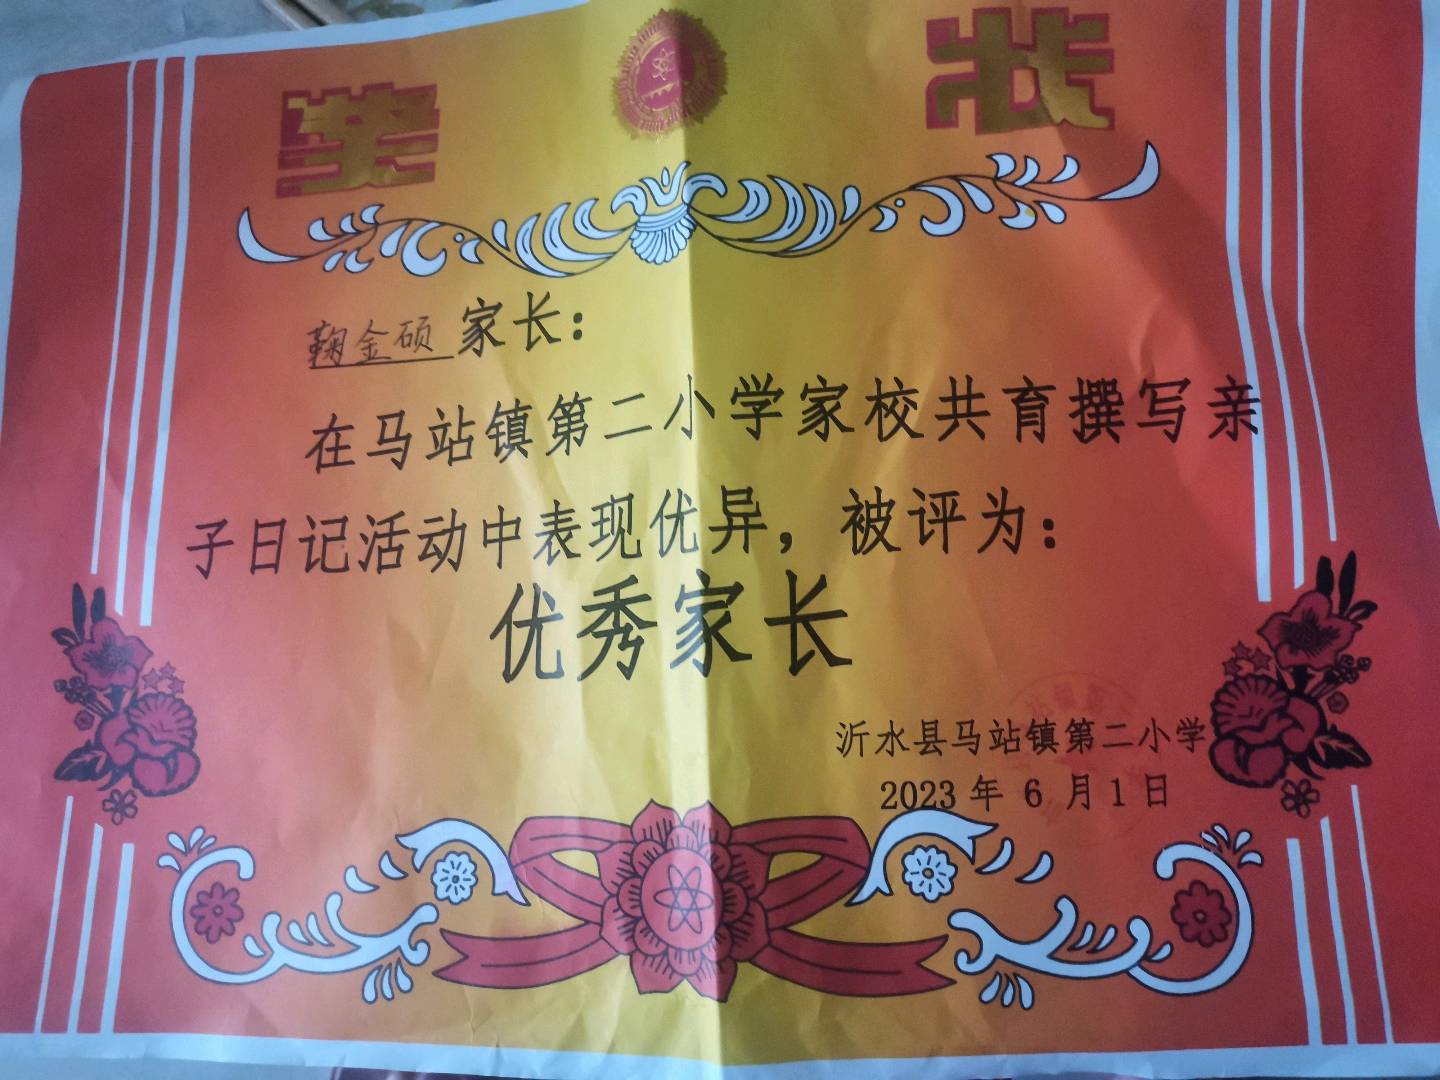 奖状
鞠金硕家长：
在马站镇第二小学家校共育撰写亲
子日记活动中表现优异，被评为：
优秀家长
沂水县马站镇第二小学
2023年6月1日